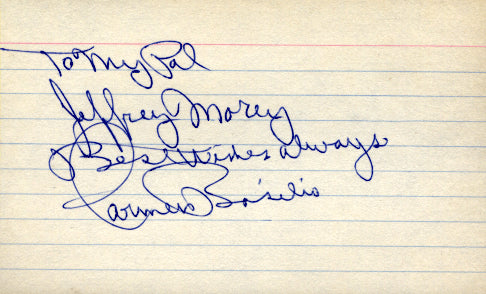 To My Pal
Jeffrey Morey
Best Wishes always
Carmen Basilio